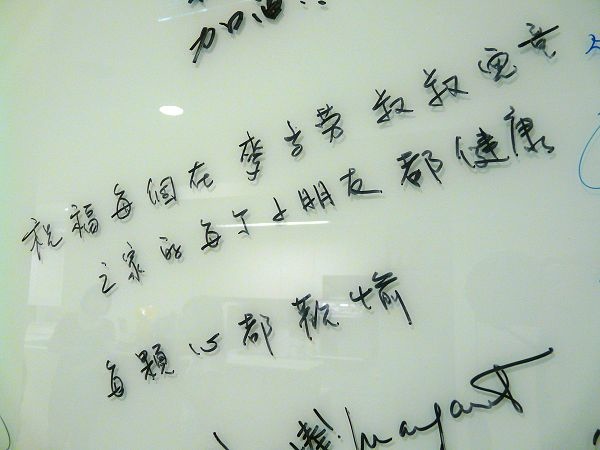 加油!!
祝福每個在麥当劳叔叔
之家的每个小朋友都健康
每顆心都歡愉
棒! Margaret